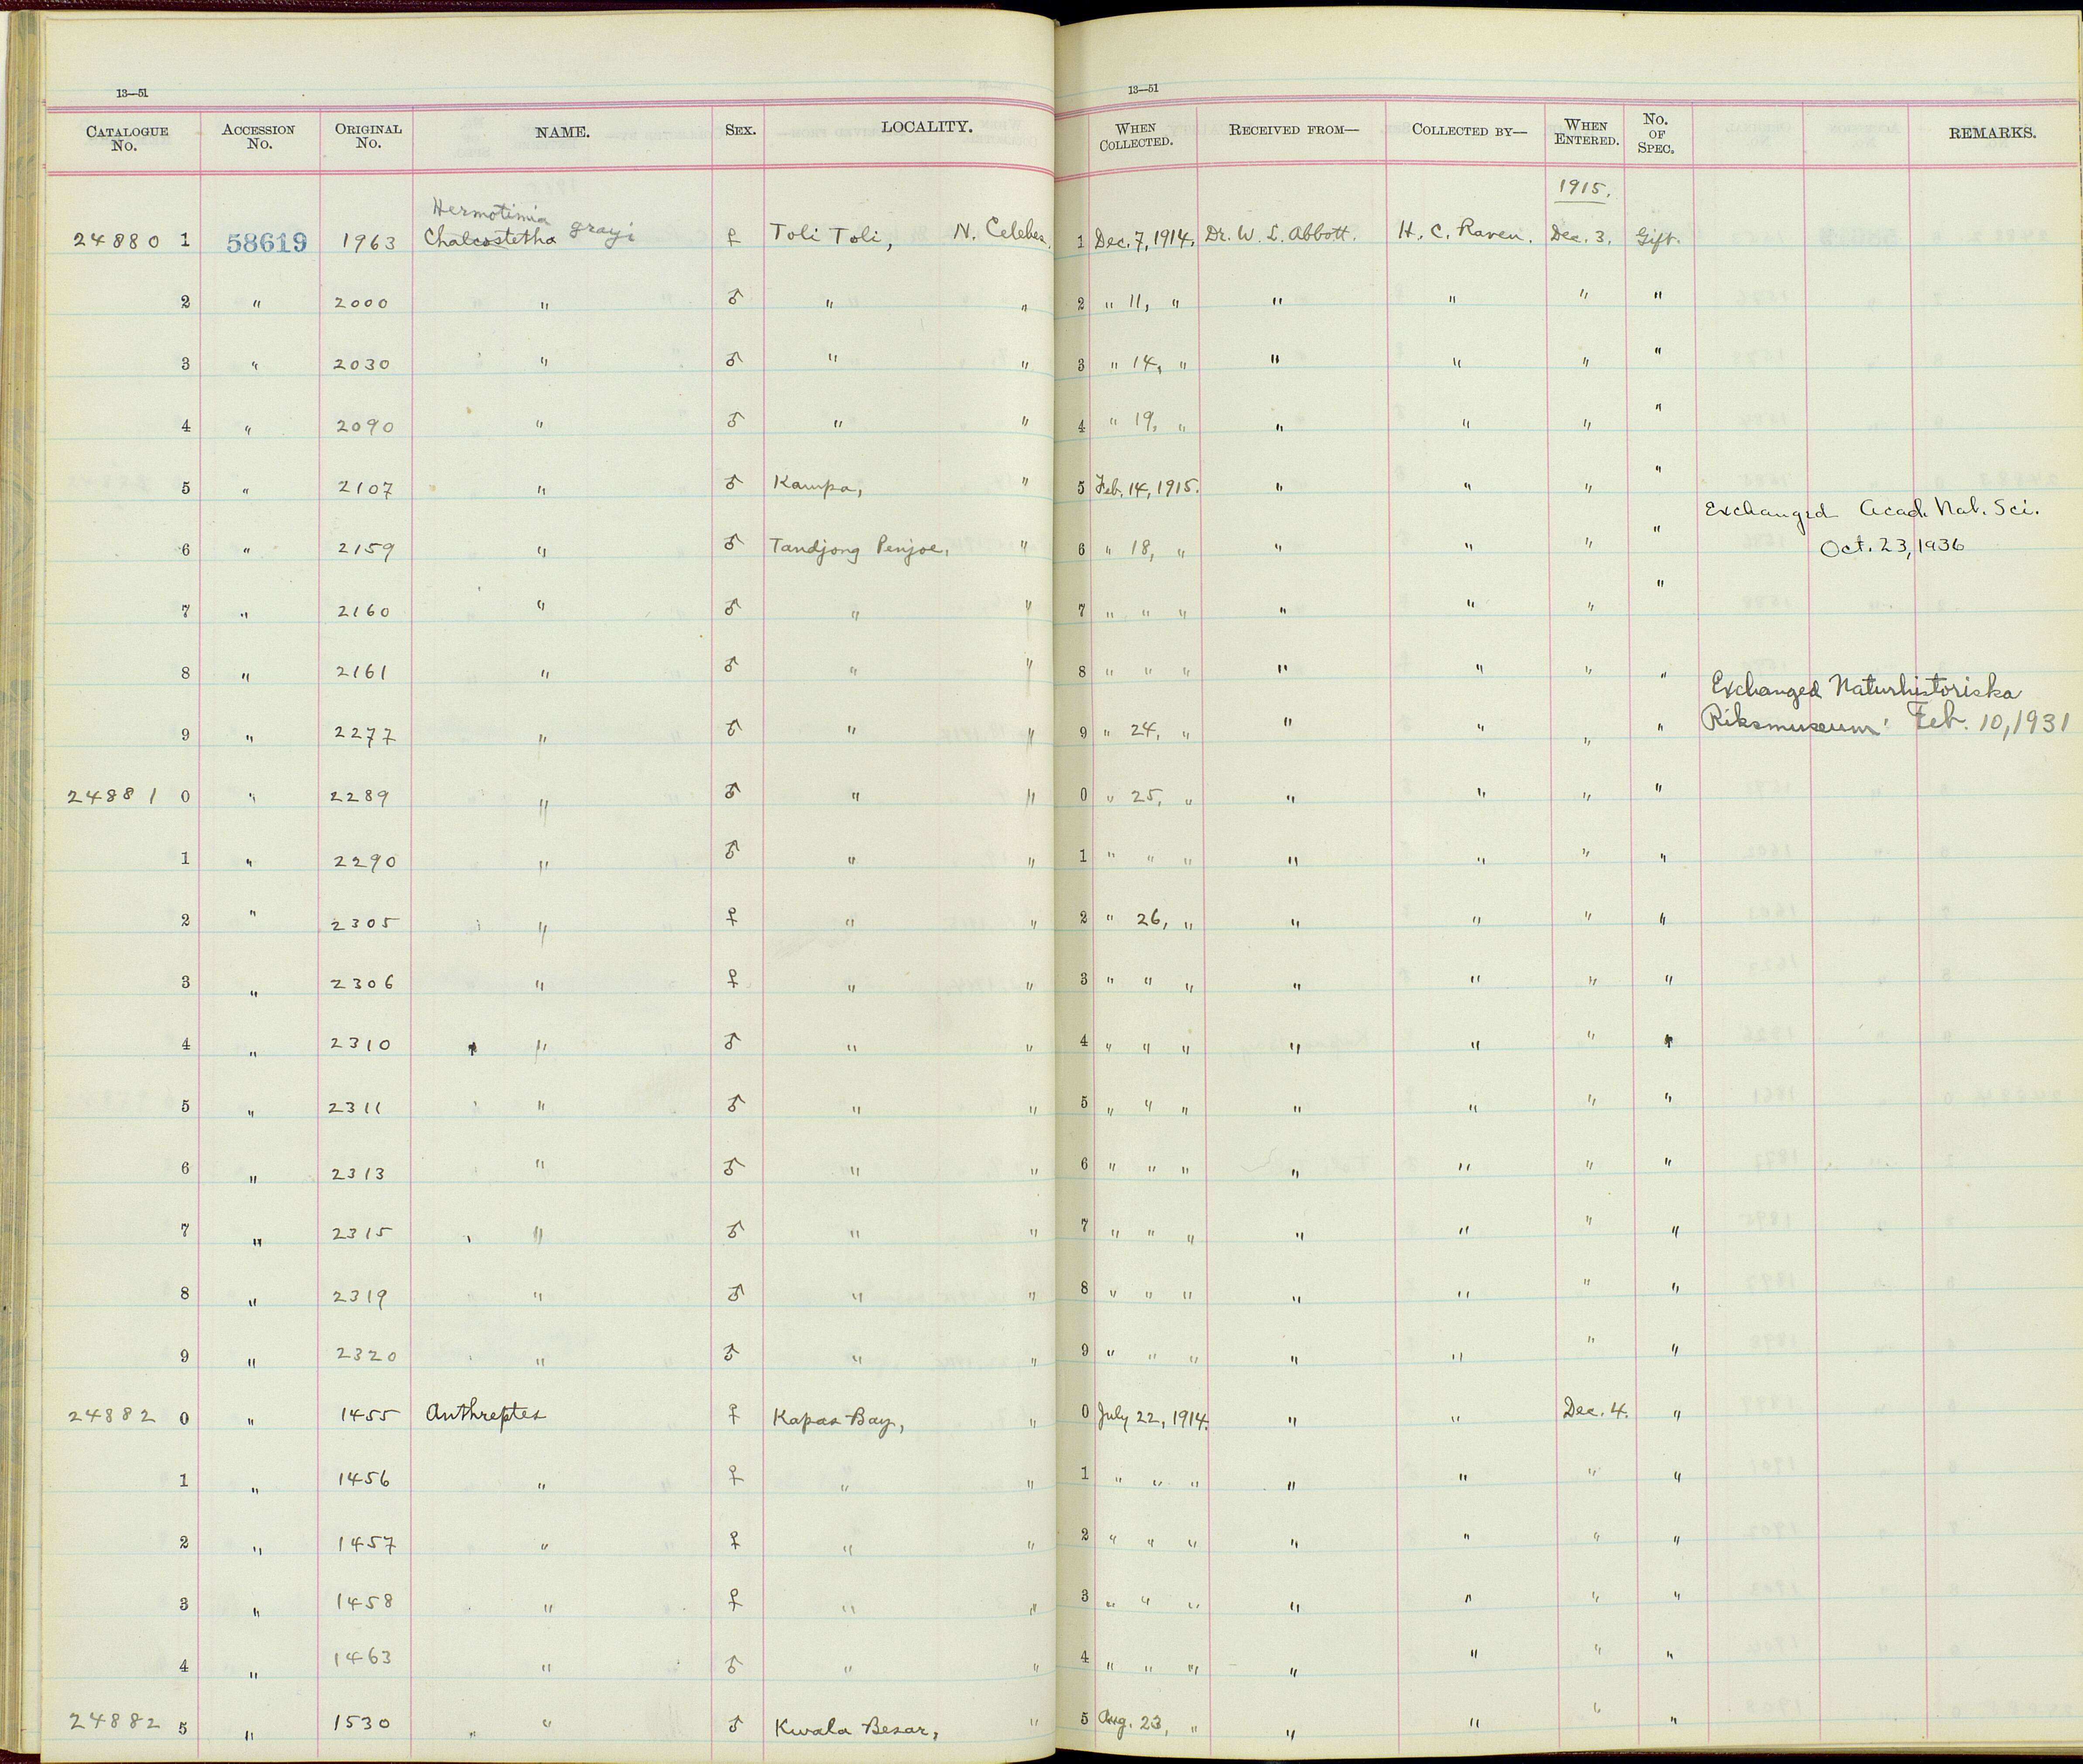 13—51
CATALOGUE No. ACCESSION No. ORIGINAL No. NAME. SEX. LOCALITY.
Hermotimia grayi
24880 1 58619 1963 Chalcostetha ♀ Toli Toli, N. Celebes.
2 " 2000 " ♂ " "
3 " 2030 " ♂ " "
4 " 2090 " ♂ " "
5 " 2107 " ♂ Kampa, "
6 " 2159 " ♂ Tandjong Penjoe, "
7 " 2160 " ♂ " "
8 " 2161 " ♂ " "
9 " 2277 " ♂ " "
24881 0 " 2289 " ♂ " "
1 " 2290 " ♂ " "
2 " 2305 " ♀ " "
3 " 2306 " ♀ " "
4 " 2310 " ♂ " "
5 " 2311 " ♂ " "
6 " 2313 " ♂ " "
7 " 2315 " ♂ " "
8 " 2319 " ♂ " "
9 " 2320 " ♂ " "
24882 0 " 1455 Anthreptes ♀ Kapas Bay, "
1 " 1456 " ♀ " "
2 " 1457 " ♀ " "
3 " 1458 " ♀ " "
4 " 1463 " ♂ " "
24882 5 " 1530 " ♂ Kwala Besar, "
13—51
WHEN COLLECTED. RECEIVED FROM— COLLECTED BY— WHEN ENTERED. No. OF SPEC. REMARKS.
1915.
1 Dec. 7, 1914. Dr. W. L. Abbott. H. C. Raven. Dec. 3. Gift.
2 " 11, " " " " "
3 " 14, " " " " "
4 " 19, " " " " "
5 Feb. 14, 1915. " " " "
Exchanged Acad. Nat. Sci.
6 " 18, " " " " " Oct. 23, 1936
7 " " " " " " "
8 " " " " " " "
Exchanged Naturhistoriska
9 " 24, " " " " " Riksmuseum Feb. 10, 1931
0 " 25, " " " " "
1 " " " " " " "
2 " 26, " " " " "
3 " " " " " " "
4 " " " " " " "
5 " " " " " " "
6 " " " " " " "
7 " " " " " " "
8 " " " " " " "
9 " " " " " " "
0 July 22, 1914. " " Dec. 4. "
1 " " " " " " "
2 " " " " " " "
3 " " " " " " "
4 " " " " " " "
5 Aug. 23, " " " " "